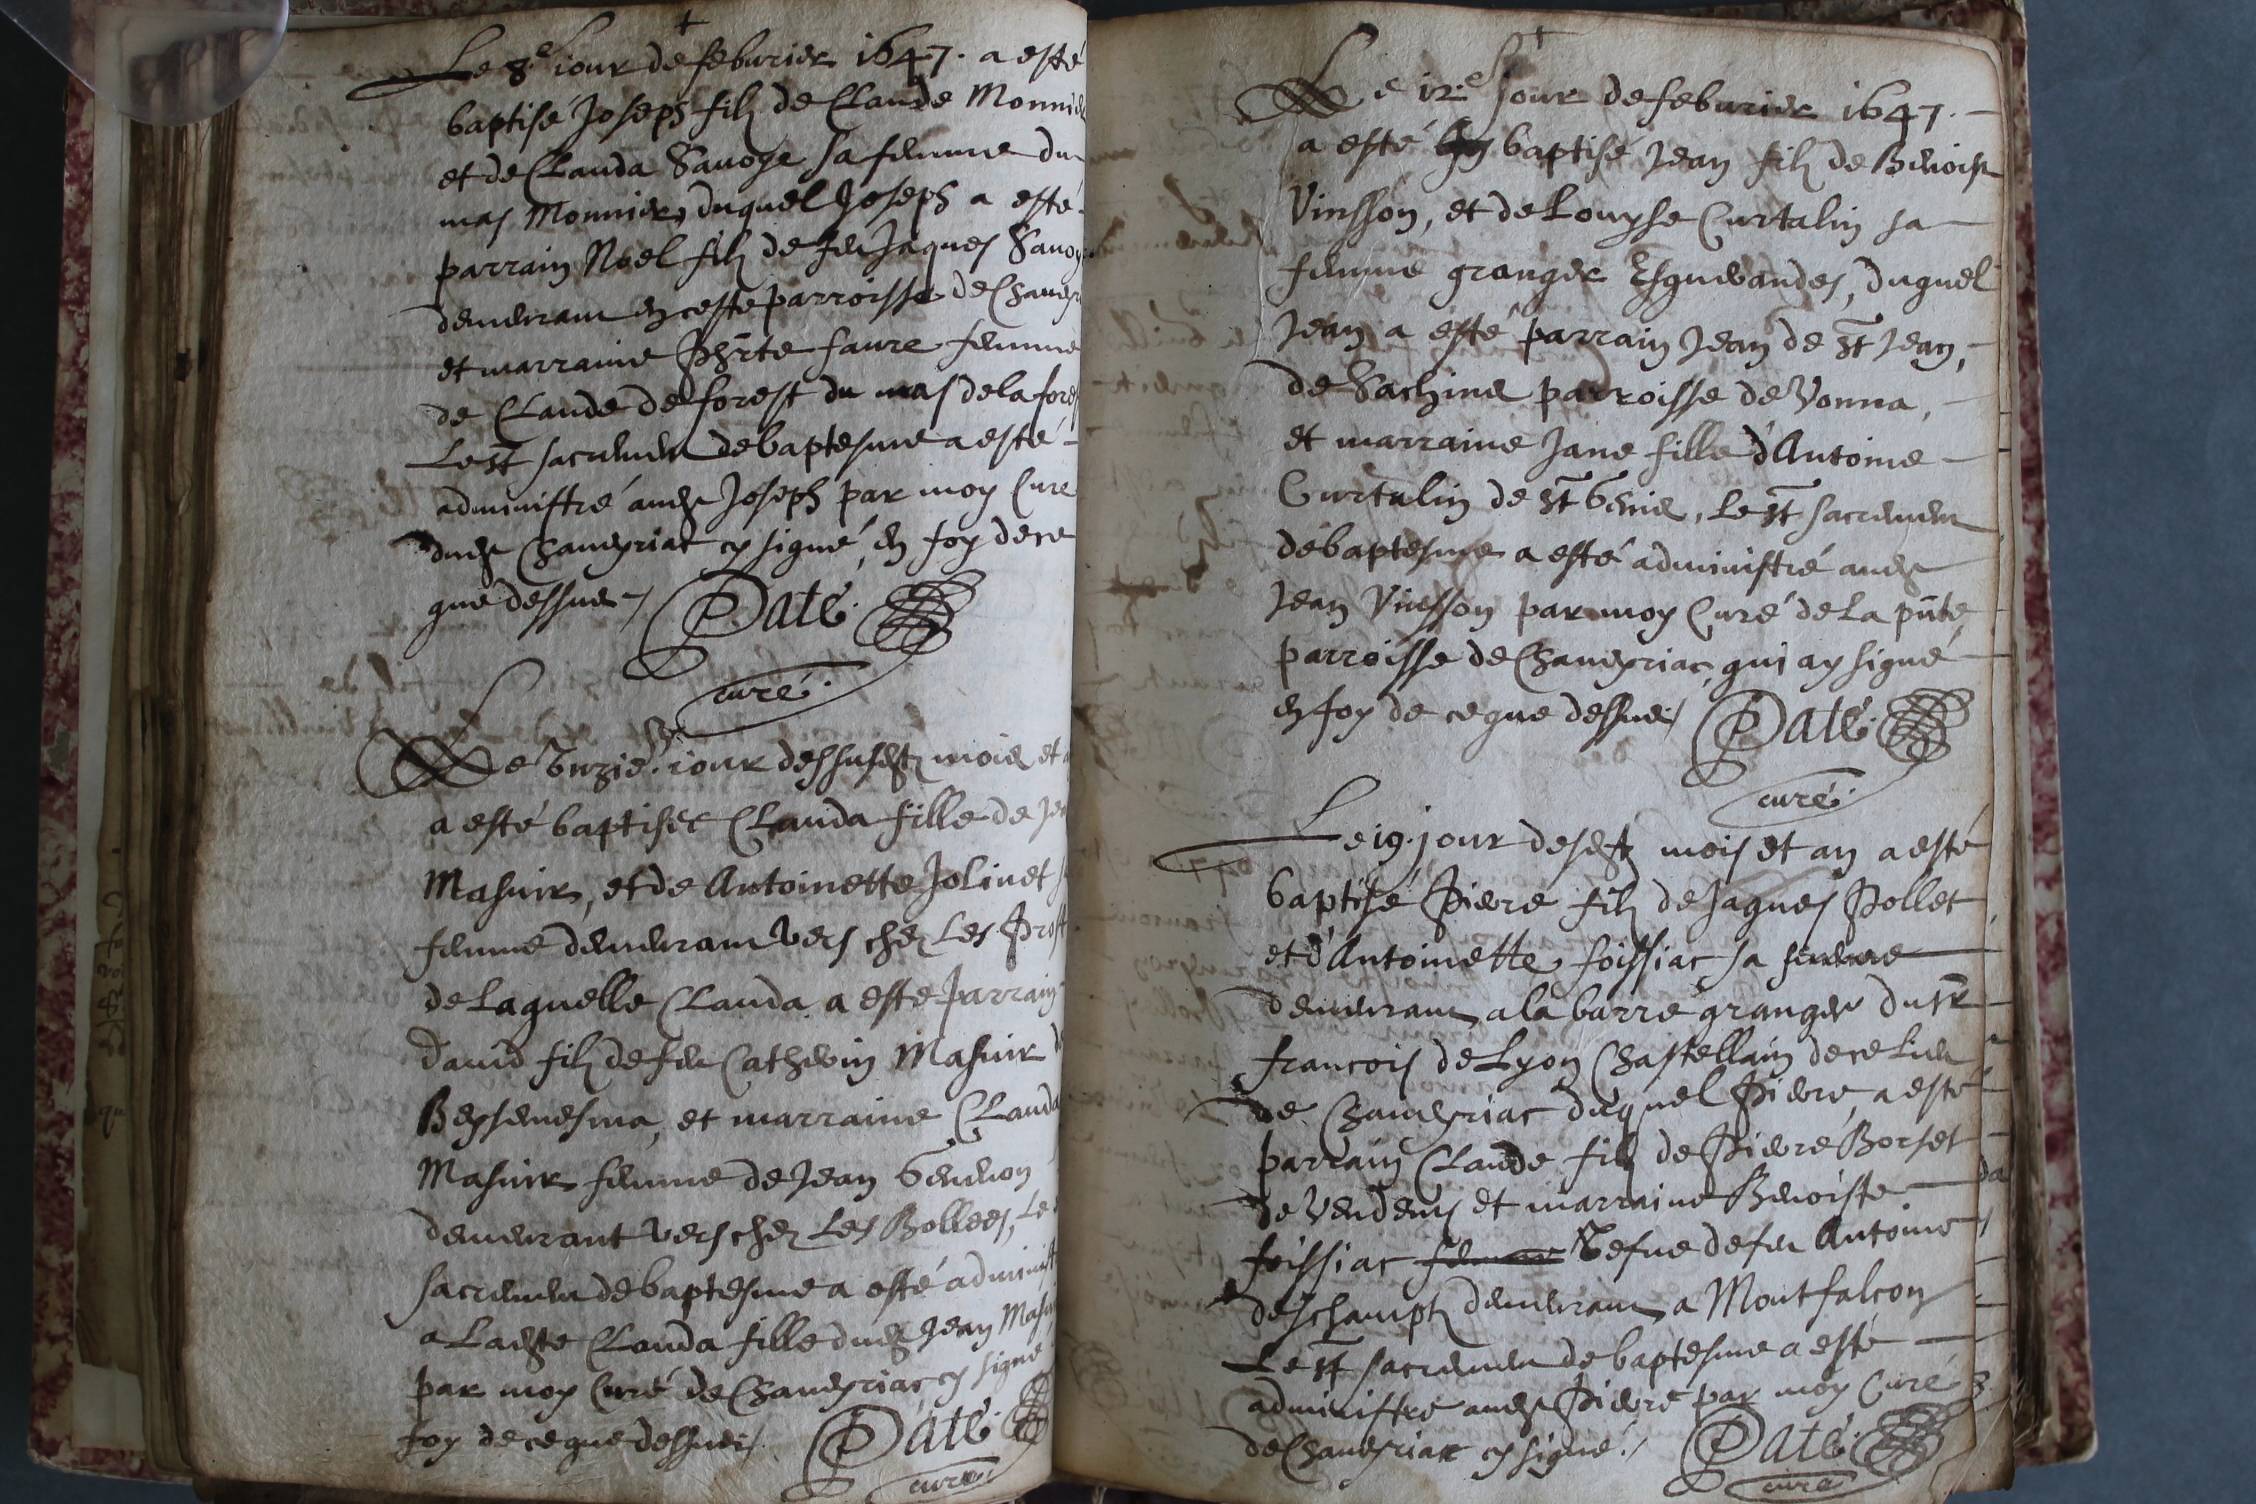 Le 8.e jour de feburier 1647. a esté
baptisé Joseph filz de Claude Monnier
et de Clauda Sauoye sa femme du
mas Monnier, duquel Joseph a esté
parrain Noel filz de feu Jaques Sauoy
demeurant en ceste parroisse de Chaueyr
et marraine Phrte faure femme
de Claude de forest du mas de la fores
Le st sacrement de baptesme a esté
administré audt Joseph par moy Curé
dudt Chaueyriat cy signé, en foy de ce
que dessus
Daté.
curé.
Le Unzie. jour dessusdt mois et a
a esté baptisée Clauda fille de Jea
Masuir, et de Antoinette Jolinet s
femme demeurant vers chez Les Prost
de Laquelle Clauda a este parrain
dauid filz de feu Catherin Masuir d
Beysenesma, et marraine Clauda
Masuir femme de Jean
demeurant vers chez Les Bollees, Le
sacrement de baptesme a esté administ
a Ladte Clauda fille dudt Jean Masui
par moy Curé de Chaueyriac cy signé
foy de ce que dessus
Daté.
curé.
Le 12.e jour de feburier 1647.
a esté baptisé Jean filz de Benoist
Vinsson, et de Louyse Curtalin sa
femme granger Esguerandes, duquel
Jean a esté parrain Jean de St Jean,
de Sachine parroisse de Vonna,
et marraine Jane fille d'Antoine
Curtalin de St Genie. Le st sacrement
de baptesme a esté administré audt
Jean Vinsson par moy Curé de La pnte
parroisse de Chaueyriac, qui ay signé
en foy de ce que dessus
Daté.
curé.
Le 19. jour desdt mois et an a esté
baptisé Pierre filz de Jaques Pollet
et d'Antoinette foissiac sa femme
demeurant a la barre granger du sr
francois de Lyon Chastellain de ce Lieu
de Chaueyriac duquel Pierre, a esté
parrain Claude filz de Pierre Borset
de Vendeins et marraine Benoiste
foissiac femme Vefue de feu Antoine
deschampz demeurant a Montfalcon
Le st sacrement de baptesme a esté
administré audt Pierre par moy Curé
de Chaueyriat cy signé.
Daté.
curé